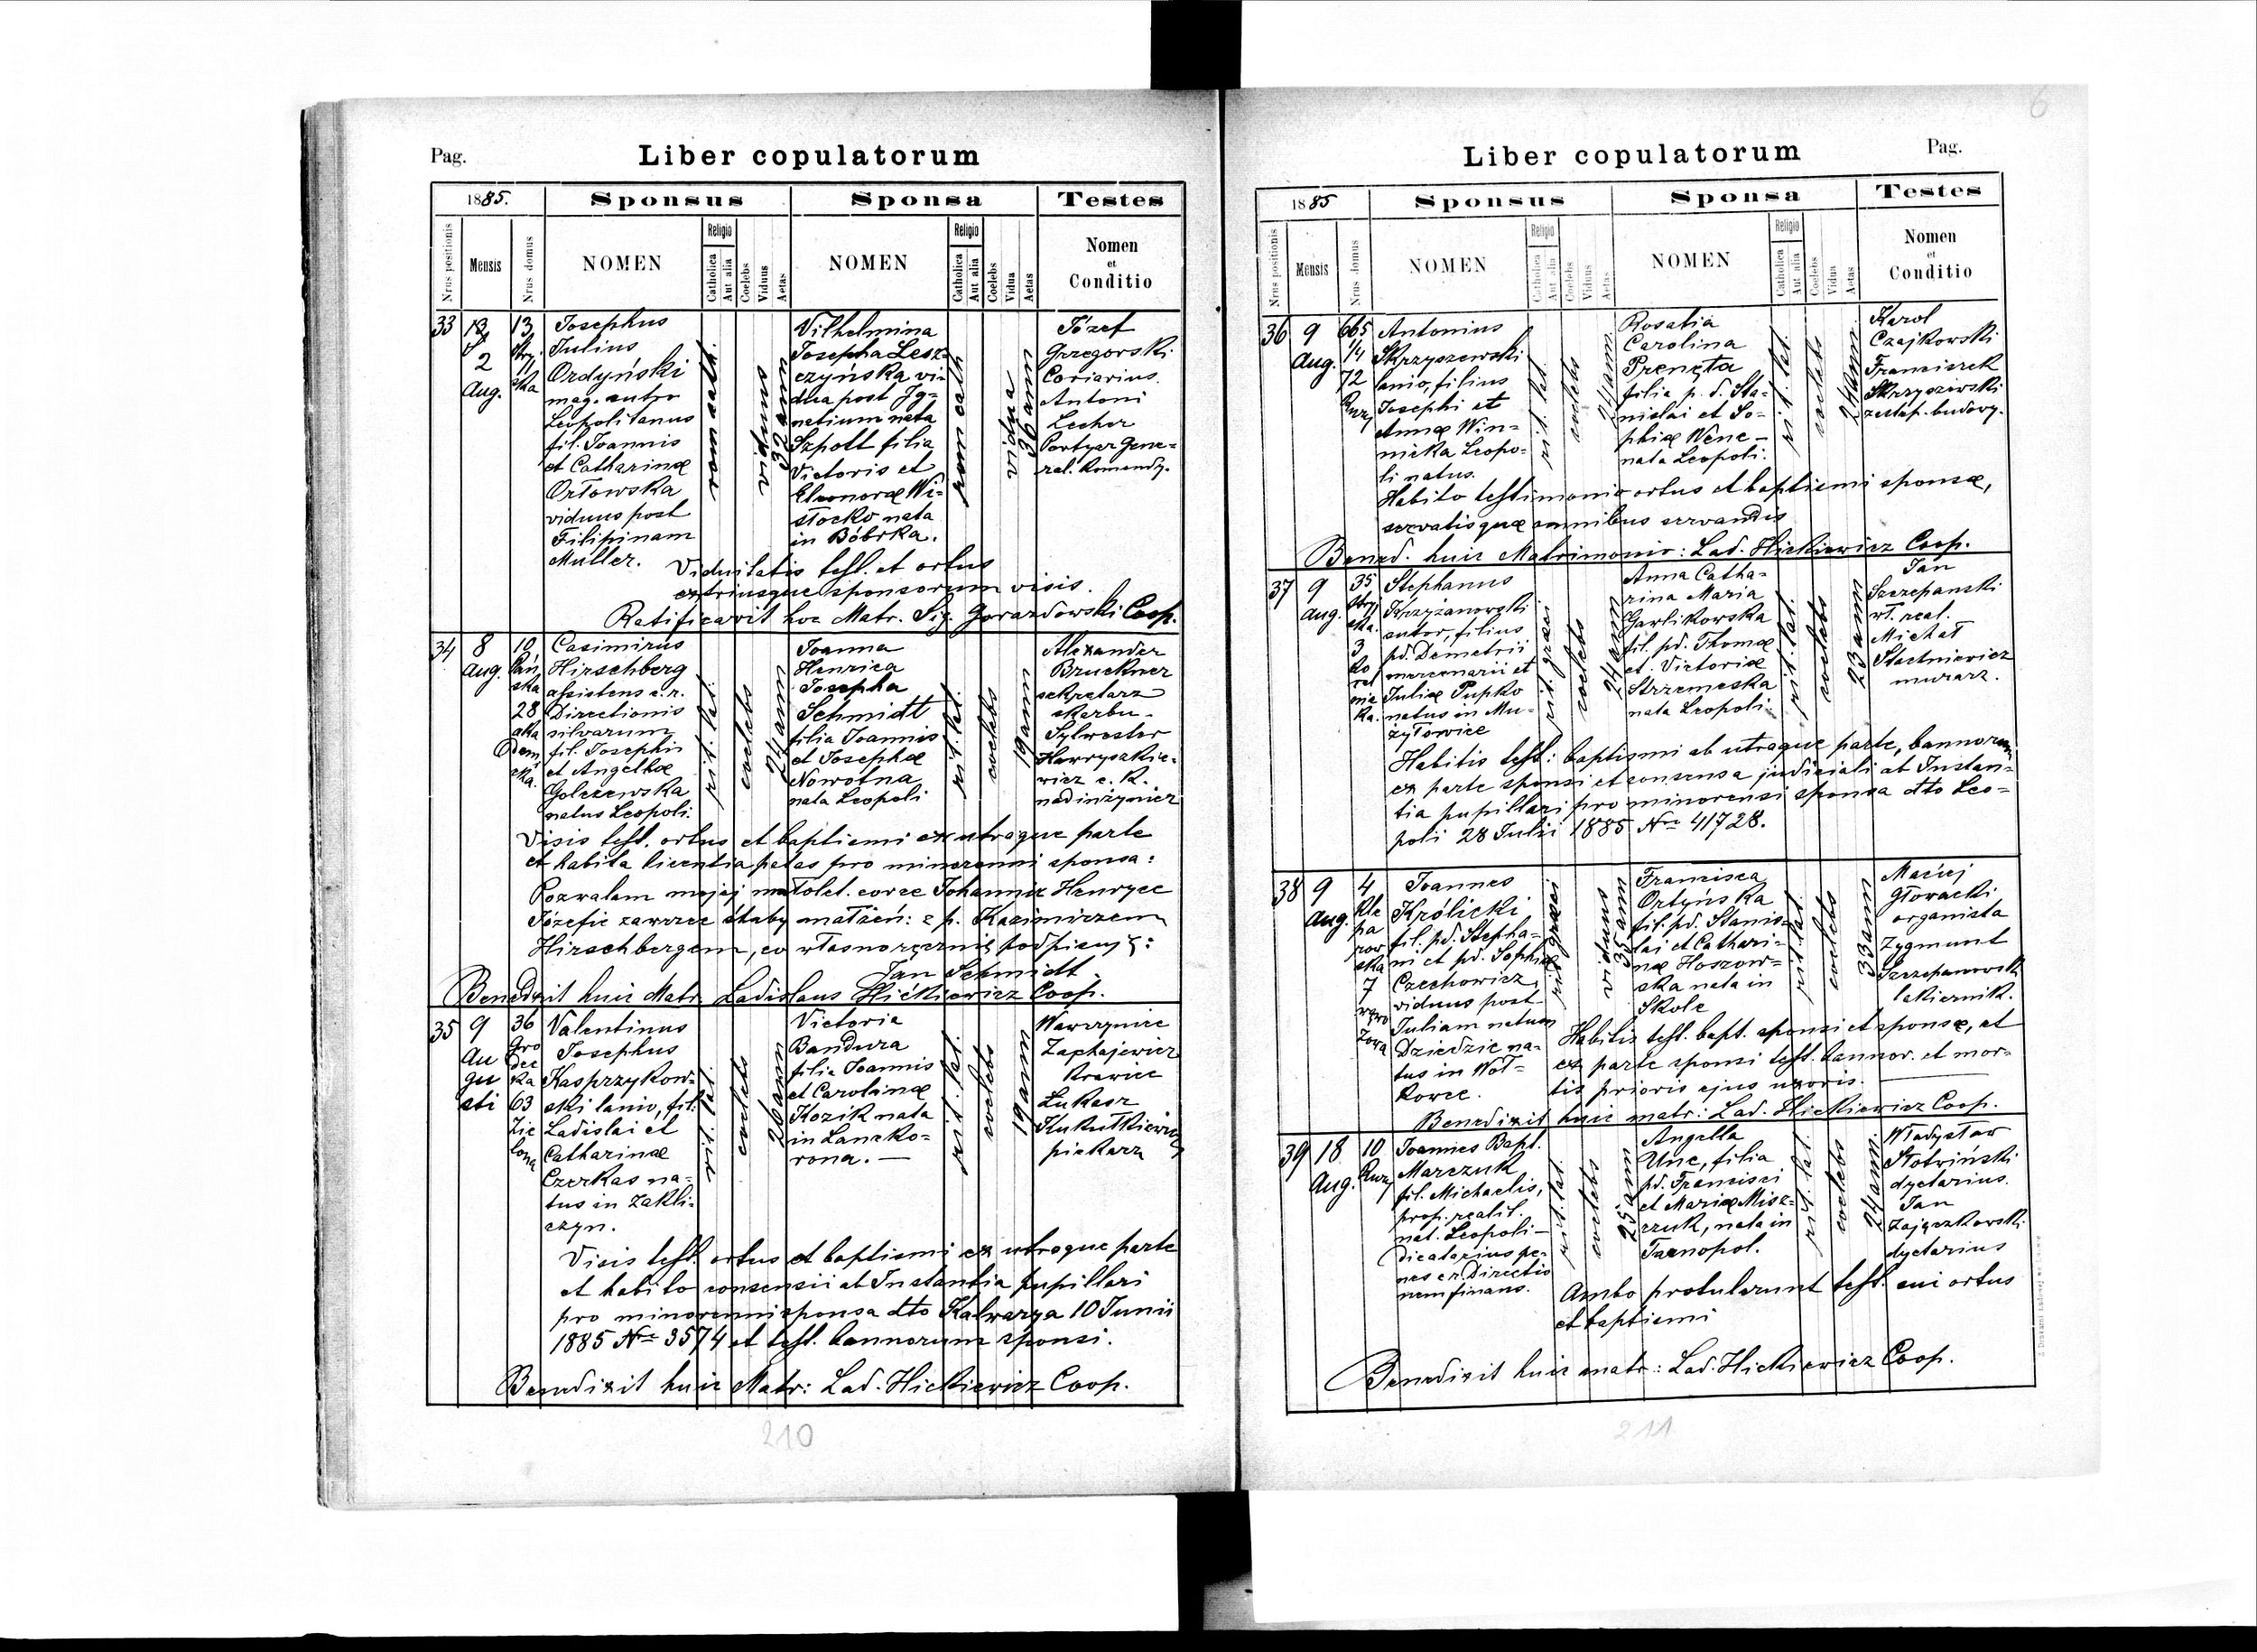 Pag.
Liber copulatorum
1885.
Sponsus
Sponsa
Testes
Nrus positionis
Mensis
Nrus domus
NOMEN
Religio
Catholica
Aut alia
Coelebs
Viduus
Aetas
NOMEN
Religio
Catholica
Aut alia
Coelebs
Vidua
Aetas
Nomen
et
Conditio
33
2
Aug.
13
Stry
ska
Josephus
Julius
Ordyński
mag. sutro
Leopolitanus
fil. Joannis
et Catharinæ
Orłowska
viduus post
Filipinam
Müller.
rom cath
viduus
32 ann
Vilhelmina
Josepha Lesz-
czyńska vi-
dua post Ig-
natium nata
Szpott filia
Victoris et
Eleonoræ Wi-
stocko nata
in Bóbrka.
rom cath
vidua
39 ann
Józef
Grzegorski
Coriarius.
Antoni
Lecher
Portyer Gene-
ral. Komendy.
Viduitatis test. et ortus
utriusque sponsorum visis.
Ratificavit hoc Matr. Sig. Gorazdowski Coop.
34
8
Aug.
10
Pań
ska
28
aka
dem
ska.
Casimirus
Hirschberg
assistens c. r.
Directionis
silvarum
fil. Josephi
et Angelæ
Golczewska
natus Leopoli.
rit. lat.
coelebs
24 ann
Joanna
Henrica
Josepha
Schmidt
filia Joannis
et Josephæ
Nowotna
nata Leopoli
rit. lat.
coelebs
19 ann
Alexander
Bruckner
sekretarz
skarbu -
Sylwester
Hawryszkie-
wicz c. k.
nadinżynier
Visis test. ortus et baptismi ex utraque parte
et habita licentia patas pro minorenni sponsa:
Pozwalam mojej małolet. corce Johannie Henryce
Józefie zawrzec śluby małżeń: z p. Kazimirzem
Hirschbergem, co własnoręcznie podpisuję:
Jan Schmidt
Benedixit huic Matr. Ladislaus Hićkiewicz Coop.
35
9
Au
gu
sti
36
Gro
dec
ka
63
Zie
lona
Valentinus
Josephus
Kasprzykow-
ski lanio, fil.
Ladislai et
Catharinæ
Czerkas na-
tus in Zakli-
czyn.
rit. lat.
coelebs
26 ann
Victoria
Bandura
filia Joannis
et Carolinæ
Kozik nata
in Lanzko-
rona. —
rit. lat.
coelebs
19 ann
Wawrzyniec
Zaphajewicz
Krawiec
Lukasz
Kukułkiewicz
piekarz
Visis test. ortus et baptismi ex utraque parte
et habito consensu ab Instantia pupillari
pro minorenni sponsa dto Kalwarya 10 Junii
1885 Nro 3574 et test. bannorum sponsi.
Benedixit huic Matr: Lad. Hickiewicz Coop.
210
6
Liber copulatorum
Pag.
1885
Sponsus
Sponsa
Testes
Nrus positionis
Mensis
Nrus domus
NOMEN
Religio
Catholica
Aut alia
Coelebs
Viduus
Aetas
NOMEN
Religio
Catholica
Aut alia
Coelebs
Vidua
Aetas
Nomen
et
Conditio
36
9
Aug.
665
1/4
72
Antonius
Skrzyszewski
lanio, filius
Josephi et
Annæ Win-
nicka Leopo-
li natus.
rit. lat.
coelebs
24 ann
Rosalia
Carolina
Prenęta
filia p. d. Sta-
nislai et So-
phiæ Wene -
nata Leopoli.
rit. lat.
coelebs
24 ann
Karol
Czajkowski
Franciszek
Skrzyszewski
zastęp. budowy.
Habito testimonio ortus et baptismi sponsæ,
servatisque omnibus servandis
Bened. huic Matrimonio: Lad. Hickiewicz Coop.
37
9
Aug.
35
Stry
ska.
3
Ko
ral
nic
ka.
Stephanus
Krzyżanowski
sutor, filius
pd. Demetrii
mercenarii et
Juliæ Pupko
natus in Mu-
żyłowice
rit. græci
coelebs
24 ann
Anna Catha-
rina Maria
Garlikowska
fil. pd. Thomæ
et Victoriæ
Strzemeska
nata Leopoli.
rit. lat.
coelebs
23 ann
Jan
Szczepanski
wł. real.
Michał
Stachniewicz
murarz.
Habitis test: baptismi ab utraque parte, bannorum
ex parte sponsi et consensu judiciali ab Instan-
tia pupillari pro minorensi sponsa dto Leo-
poli 28 Julii 1885 Nro 41728.
38
9
Aug.
4
Kle
pa
row
ska
7
Joannes
Królicki
fil. pd. Stepha-
ni et pd. Sophiæ
Czechowicz,
viduus post
Juliam natum
Dziedzic na-
tus in Woł-
kowce.
rit. græci
viduus
35 ann
Francisca
Ortyńska
fil. pd. Stanis-
lai et Cathari-
næ Hoszow-
ska nata in
Skole
rit. lat.
coelebs
33 ann
Maciej
Głowacki
organista
Zygmunt
Szczepanowski
lakiernik.
Habitis test. bapt. sponsi et sponsæ, et
ex parte sponsi test. bannor. et mor-
tis prioris ejus uxoris.
Benedixit huic matr: Lad. Hickiewicz Coop.
39
18
Aug.
10
Joannes Bapt.
Marczuk
fil. Michaelis,
prop. realit.
nat. Leopoli -
dicatarius pe-
nes c. r. Directio
nem finans.
rit. lat.
coelebs
25 ann
Angella
Unc, filia
pd. Francisci
et Mariæ Misz-
czuk, nata in
Tarnopol.
rit. lat.
coelebs
24 ann.
Władysław
Słotwiński
dyetarius.
Jan
Zajączkowski
dyetarius
Ambo protulerunt test. sui ortus
et baptismi
Benedixit huic matr: Lad. Hickiewicz Coop.
211